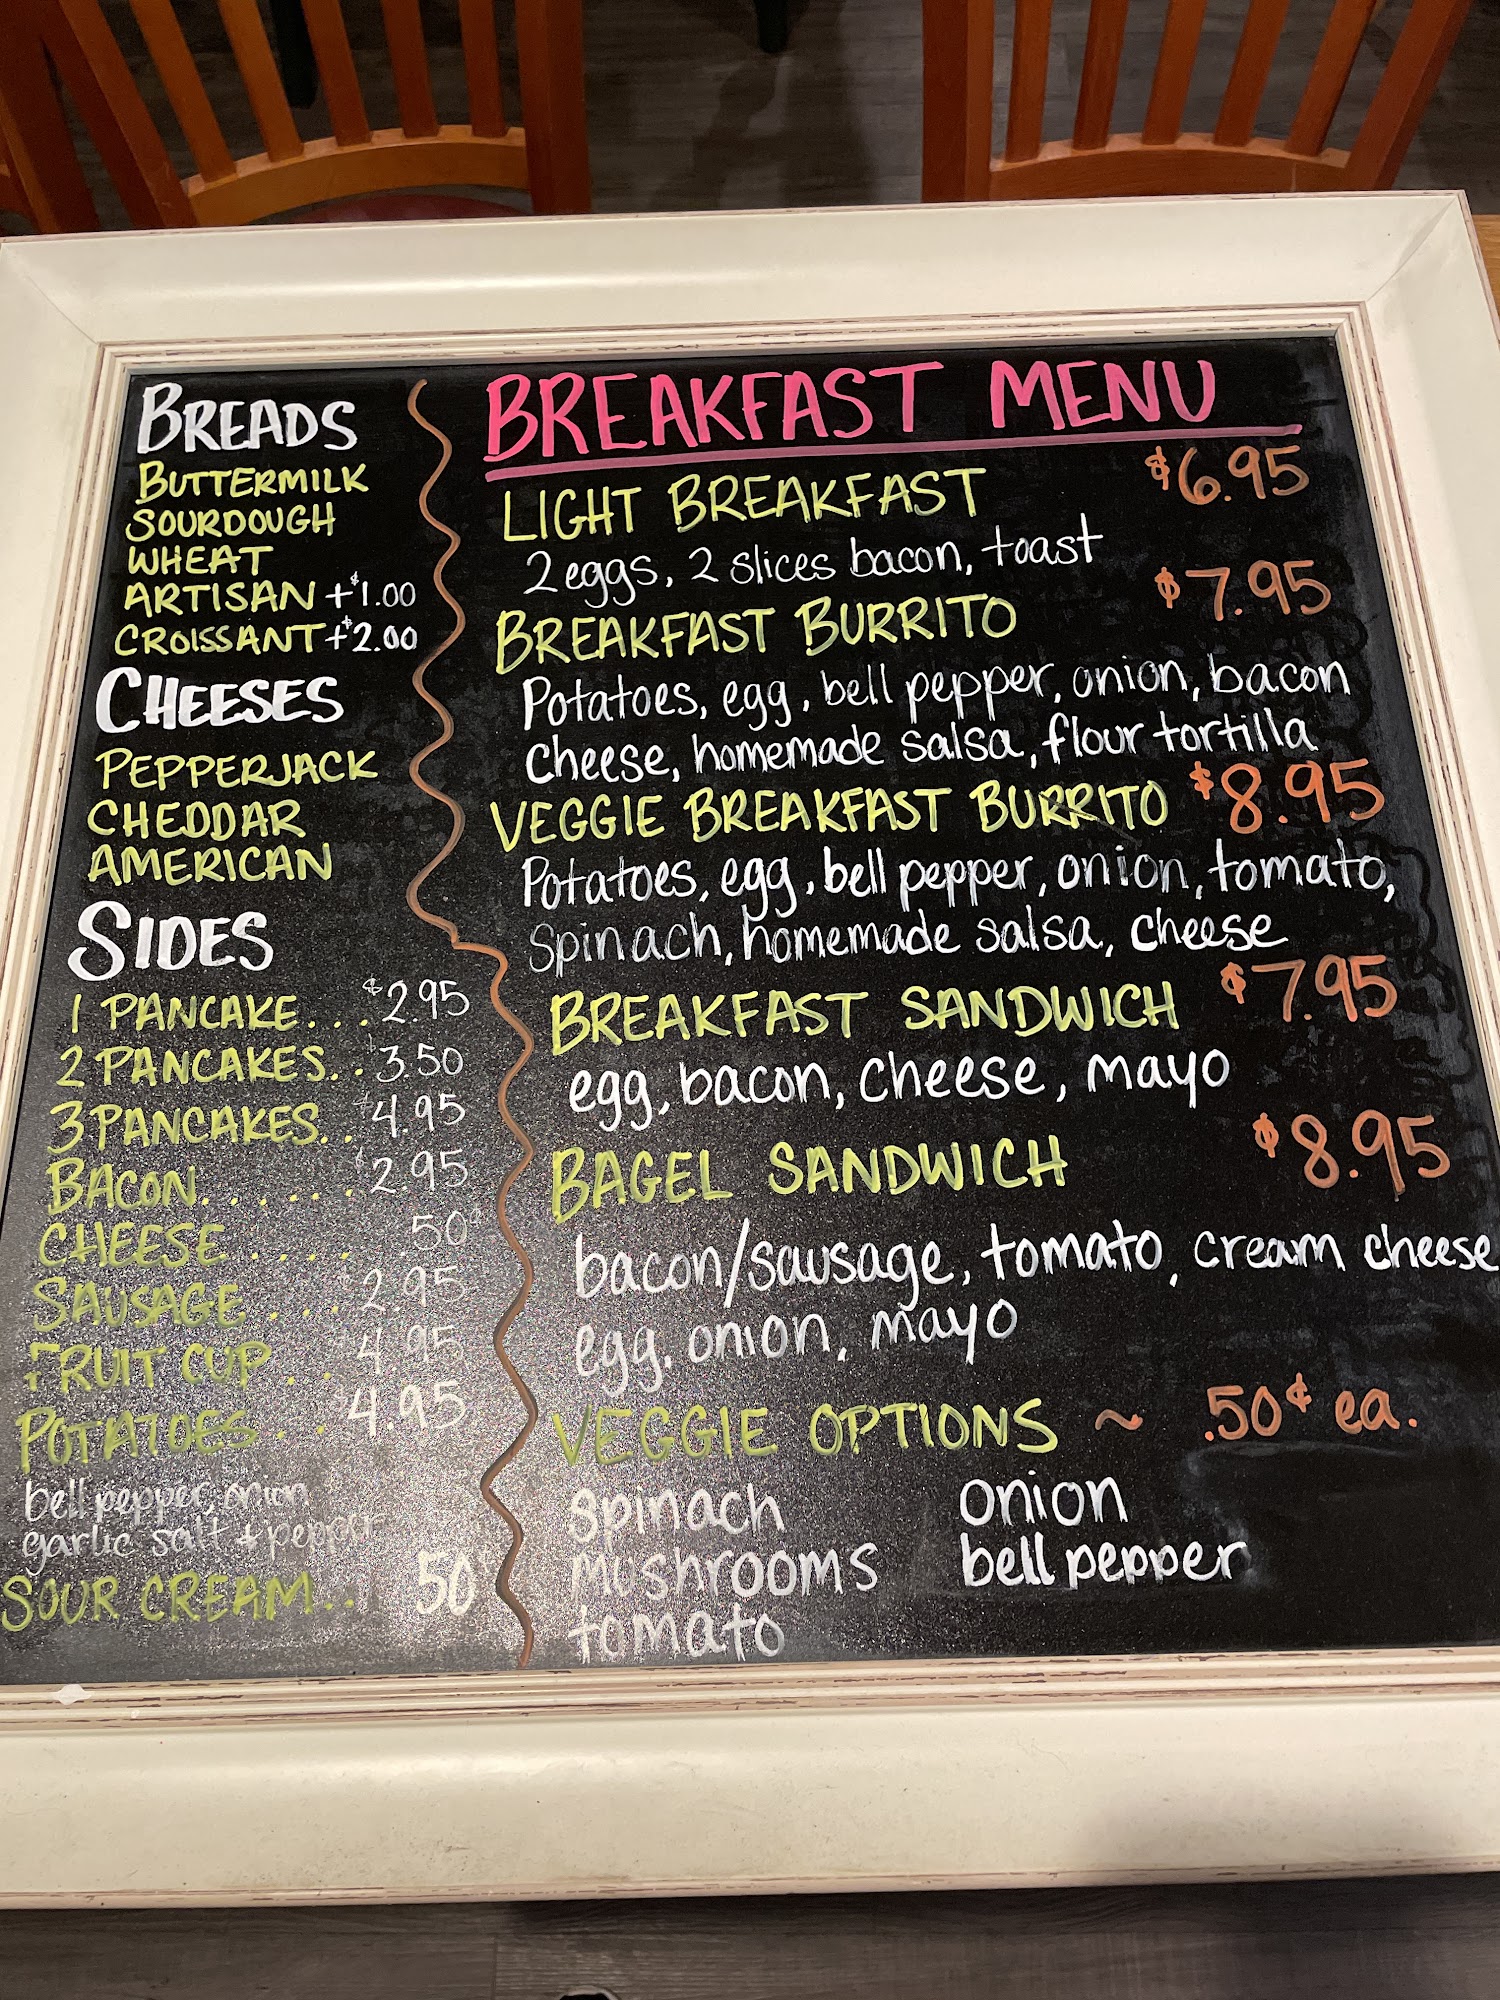 BREADS
BUTTERMILK
SOURDOUGH
WHEAT
ARTISAN +$1.00
CROISSANT +$2.00
CHEESES
PEPPERJACK
CHEDDAR
AMERICAN
SIDES
1 PANCAKE... $2.95
2 PANCAKES.. $3.50
3 PANCAKES.. $4.95
BACON...... $2.95
CHEESE ..... .50¢
SAUSAGE .... $2.95
FRUIT CUP .. $4.95
POTATOES .. $4.95
bell pepper, onion
garlic salt & pepper
SOUR CREAM.. 50¢
BREAKFAST MENU
LIGHT BREAKFAST $6.95
2 eggs, 2 slices bacon, toast
BREAKFAST BURRITO $7.95
Potatoes, egg, bell pepper, onion, bacon
cheese, homemade salsa, flour tortilla
VEGGIE BREAKFAST BURRITO $8.95
Potatoes, egg, bell pepper, onion, tomato,
spinach, homemade salsa, cheese
BREAKFAST SANDWICH $7.95
egg, bacon, cheese, mayo
BAGEL SANDWICH $8.95
bacon/sausage, tomato, cream cheese
egg, onion, mayo
VEGGIE OPTIONS ~ .50¢ ea.
spinach onion
mushrooms bell pepper
tomato